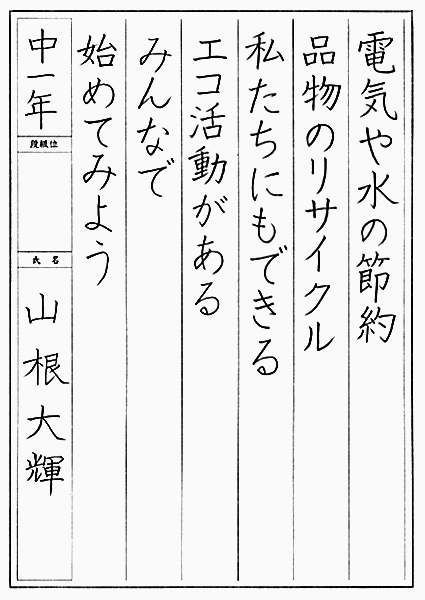 電気や水の節約
品物のリサイクル
私たちにもできる
エコ活動がある
みんなで
始めてみよう
中一年
段級位
氏名
山根大輝